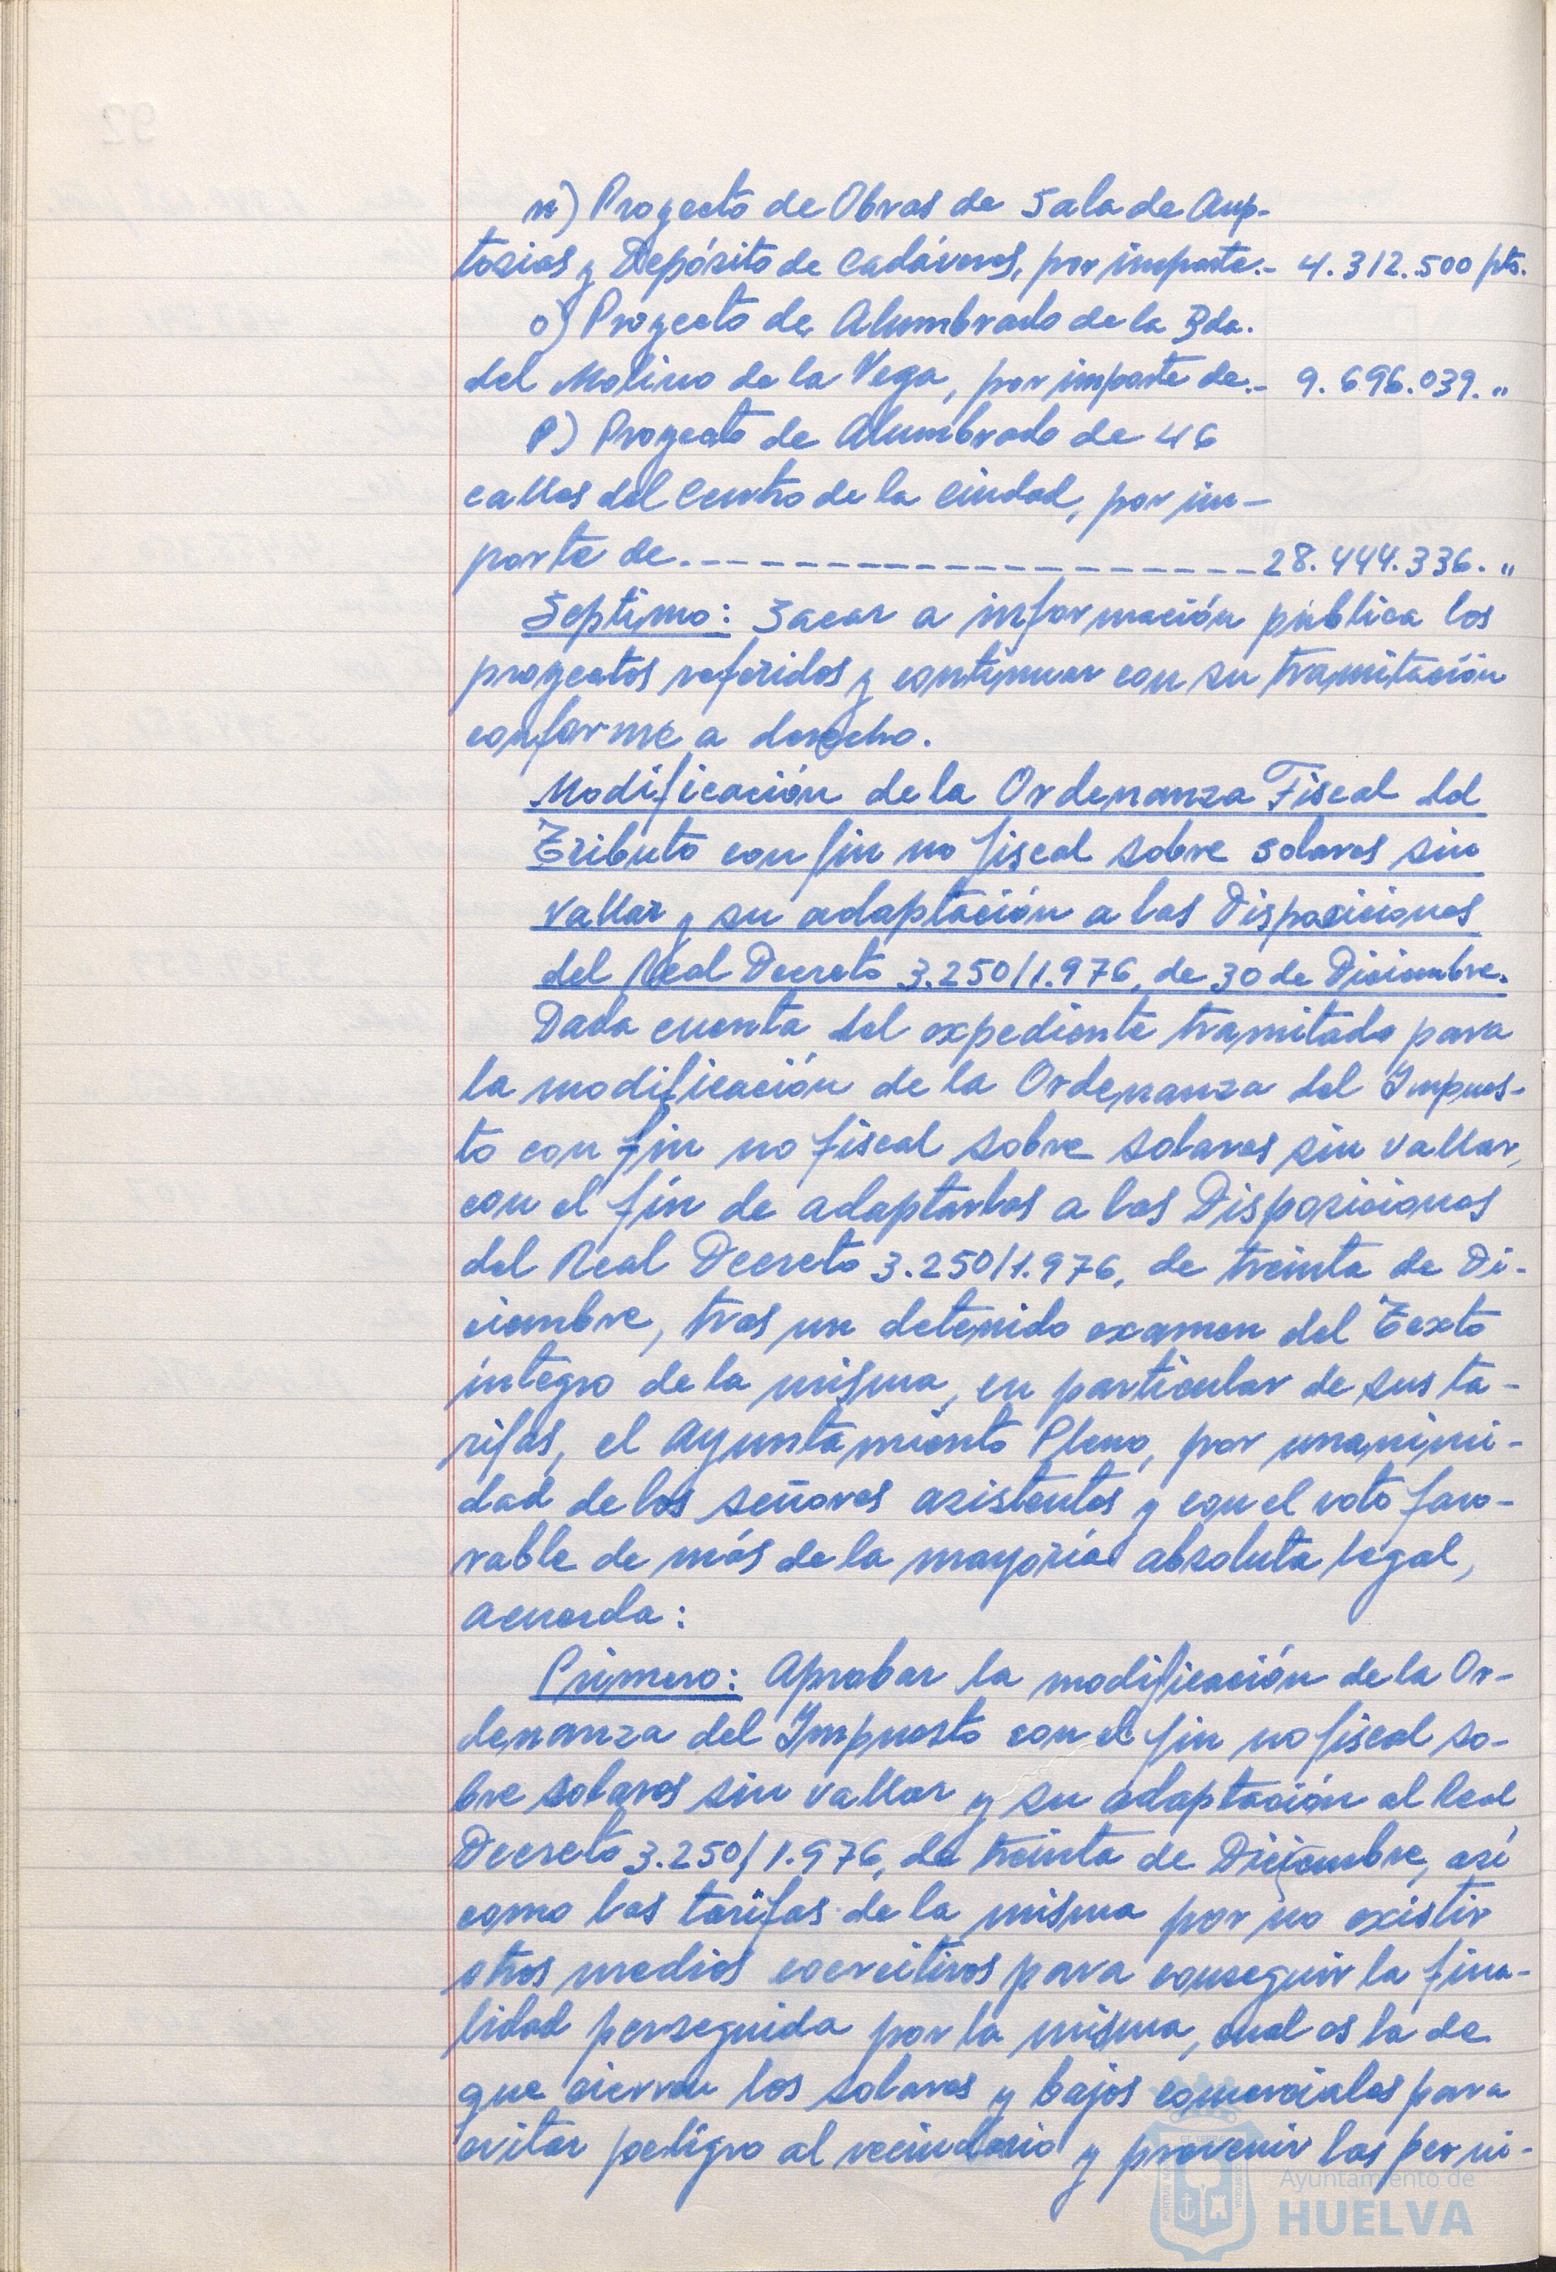 n) Proyecto de Obras de Sala de Aup-
tosias y Depósito de Cadáveres, por importe.- 4.312.500 pts.
o) Proyecto de Alumbrado de la Bda.
del Molino de la Vega, por importe de.- 9.696.039. "
p) Proyecto de Alumbrado de 46
calles del Centro de la Ciudad, por im-
porte de.------------------28.444.336. "
Septimo: Sacar a información pública los
proyectos referidos y continuar con su tramitación
conforme a derecho.
Modificación de la Ordenanza Fiscal del
Tributo con fin no fiscal sobre solares sin
vallar y su adaptación a las Disposiciones
del Real Decreto 3.250/1.976, de 30 de Diciembre.
Dada cuenta del expediente tramitado para
la modificación de la Ordenanza del Impues-
to con fin no fiscal sobre solares sin vallar,
con el fín de adaptarlas a las Disposiciones
del Real Decreto 3.250/1.976, de treinta de Di-
ciembre, tras un detenido examen del Texto
íntegro de la misma, en particular de sus ta-
rifas, el Ayuntamiento Pleno, por unanimi-
dad de los señores asistentes y con el voto favo-
rable de más de la mayoría absoluta legal,
acuerda:
Primero: Aprobar la modificación de la Or-
denanza del Impuesto con el fin no fiscal so-
bre solares sin vallar y su adaptación al Real
Decreto 3.250/1.976, de treinta de Diciembre, así
como las tarifas de la misma por no existir
otros medios coercitivos para conseguir la fina-
lidad perseguida por la misma, cual es la de
que cierren los solares y bajos comerciales para
evitar peligro al vecindario y prevenir las perni-
Ayuntamiento de
HUELVA